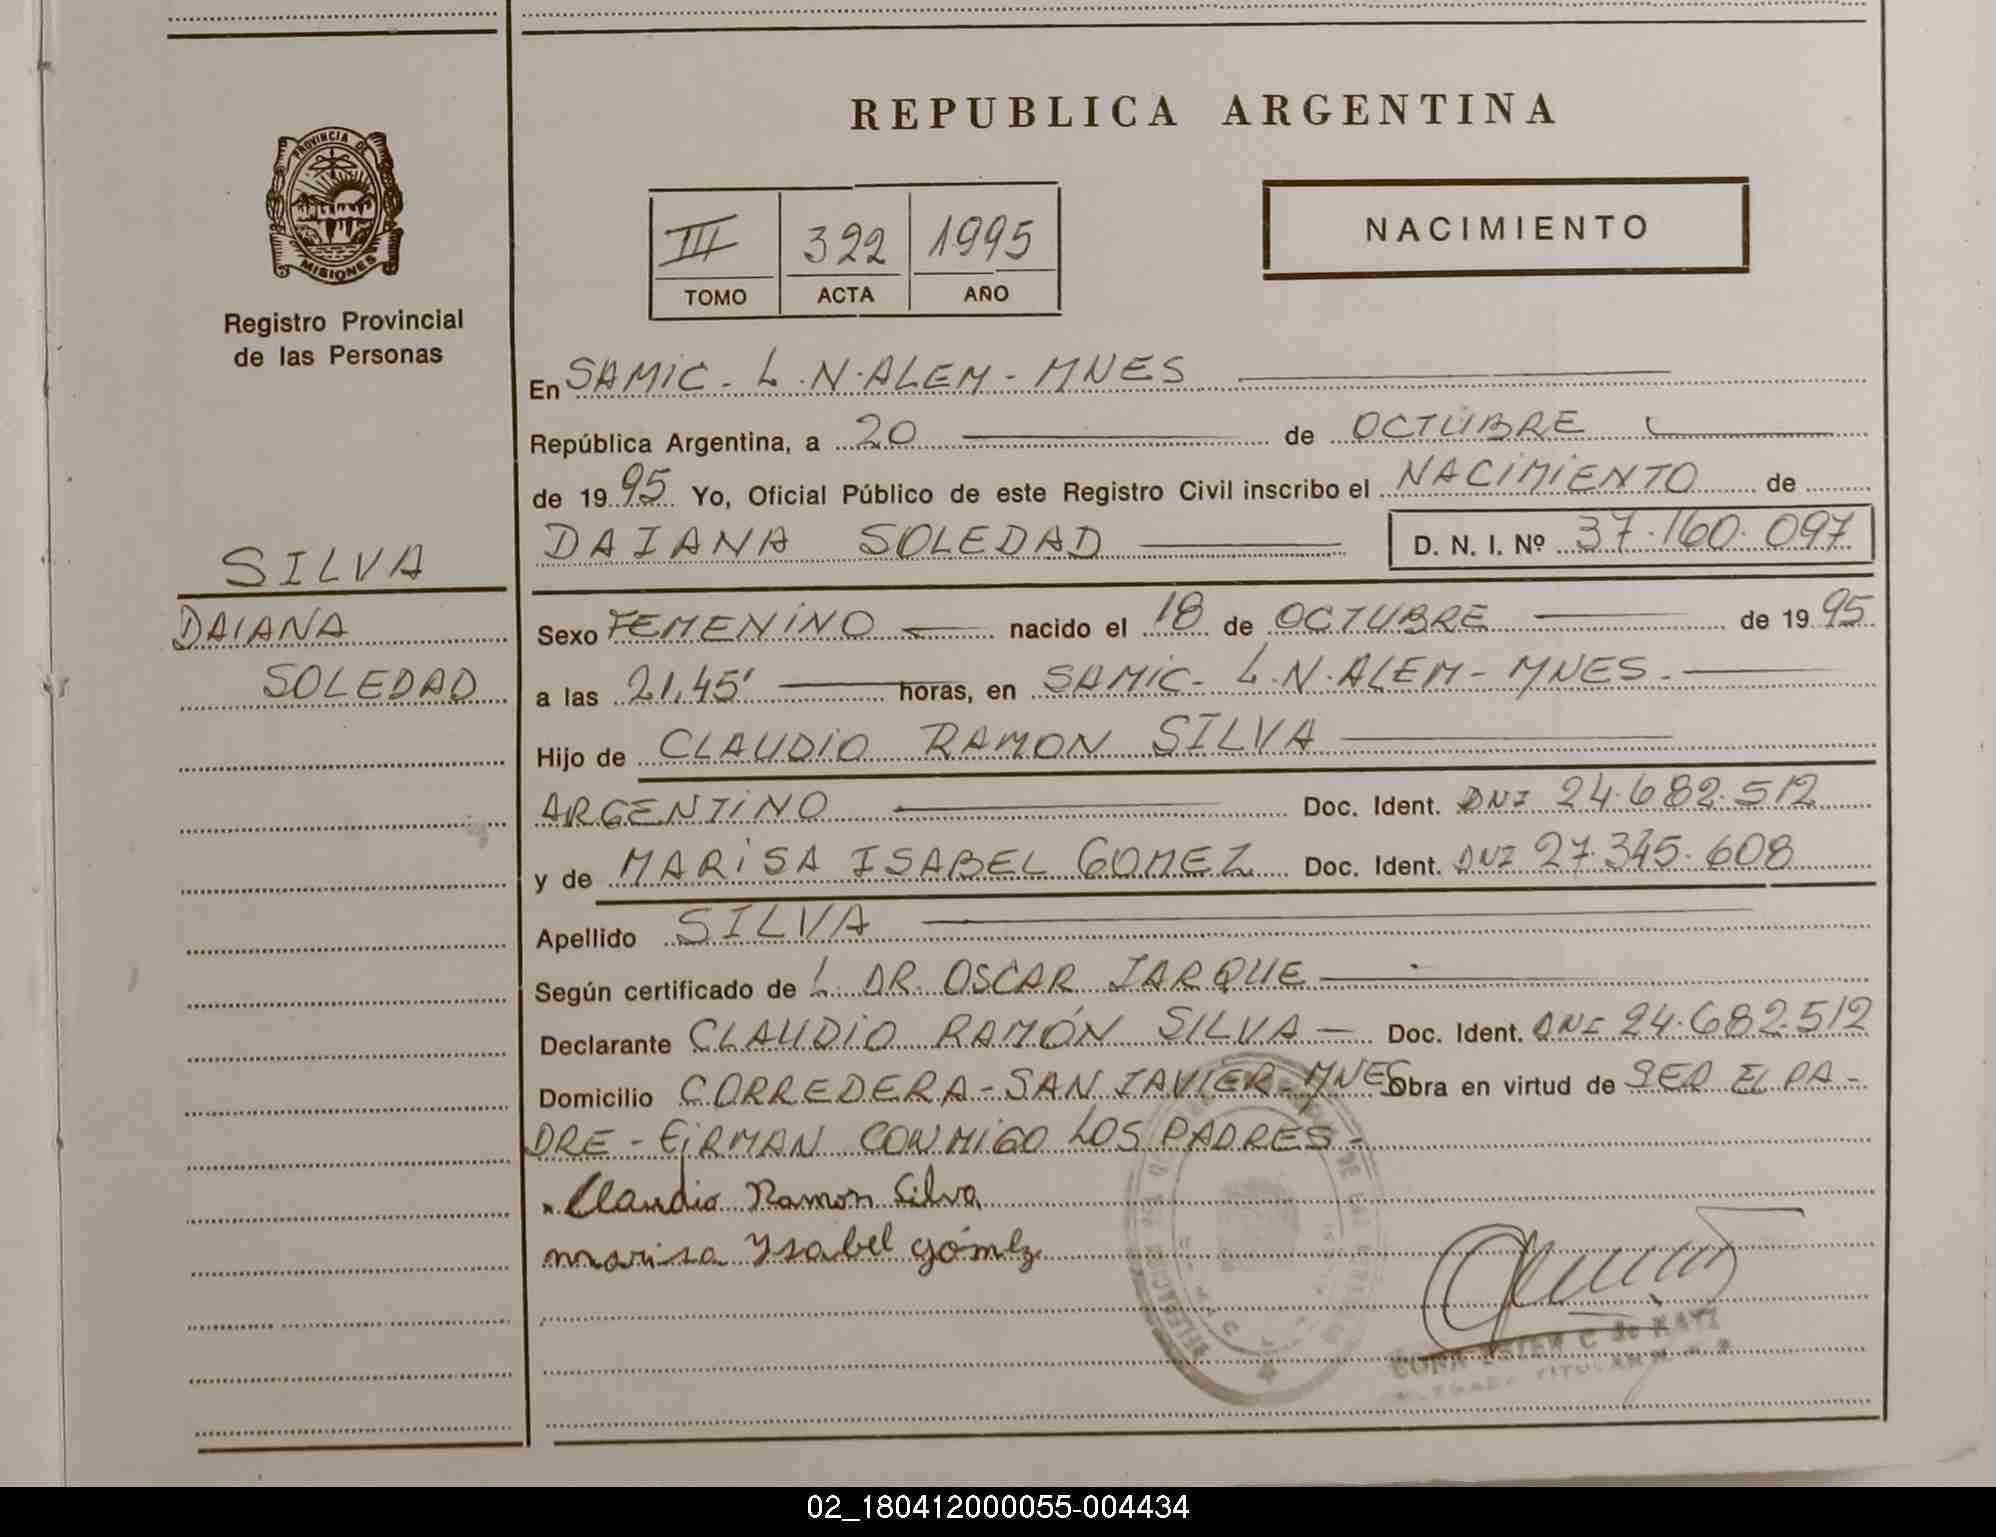 REPUBLICA ARGENTINA
PROVINCIA DE
MISIONES
Registro Provincial
de las Personas
III 322 1995
TOMO ACTA AÑO
NACIMIENTO
SILVA
DAIANA
SOLEDAD
En SAMIC - L.N.ALEM - MNES
República Argentina, a 20 de OCTUBRE
de 1995 Yo, Oficial Público de este Registro Civil inscribo el NACIMIENTO de
DAIANA SOLEDAD D. N. I. Nº 37.160.097
Sexo FEMENINO nacido el 18 de OCTUBRE de 1995
a las 21,45' horas, en SAMIC - L.N.ALEM - MNES -
Hijo de CLAUDIO RAMON SILVA
ARGENTINO Doc. Ident. DNI 24.682.512
y de MARISA ISABEL GOMEZ Doc. Ident. DNI 27.345.608
Apellido SILVA
Según certificado de L DR. OSCAR JARQUE
Declarante CLAUDIO RAMÓN SILVA - Doc. Ident. DNI 24.682.512
Domicilio CORREDERA - SAN JAVIER - MNES Obra en virtud de SER EL PA-
DRE - FIRMAN CONMIGO LOS PADRES -
Claudio Ramon Silva
marisa Ysabel gómez
DE LAS
C. de
TITULAR
02_180412000055-004434